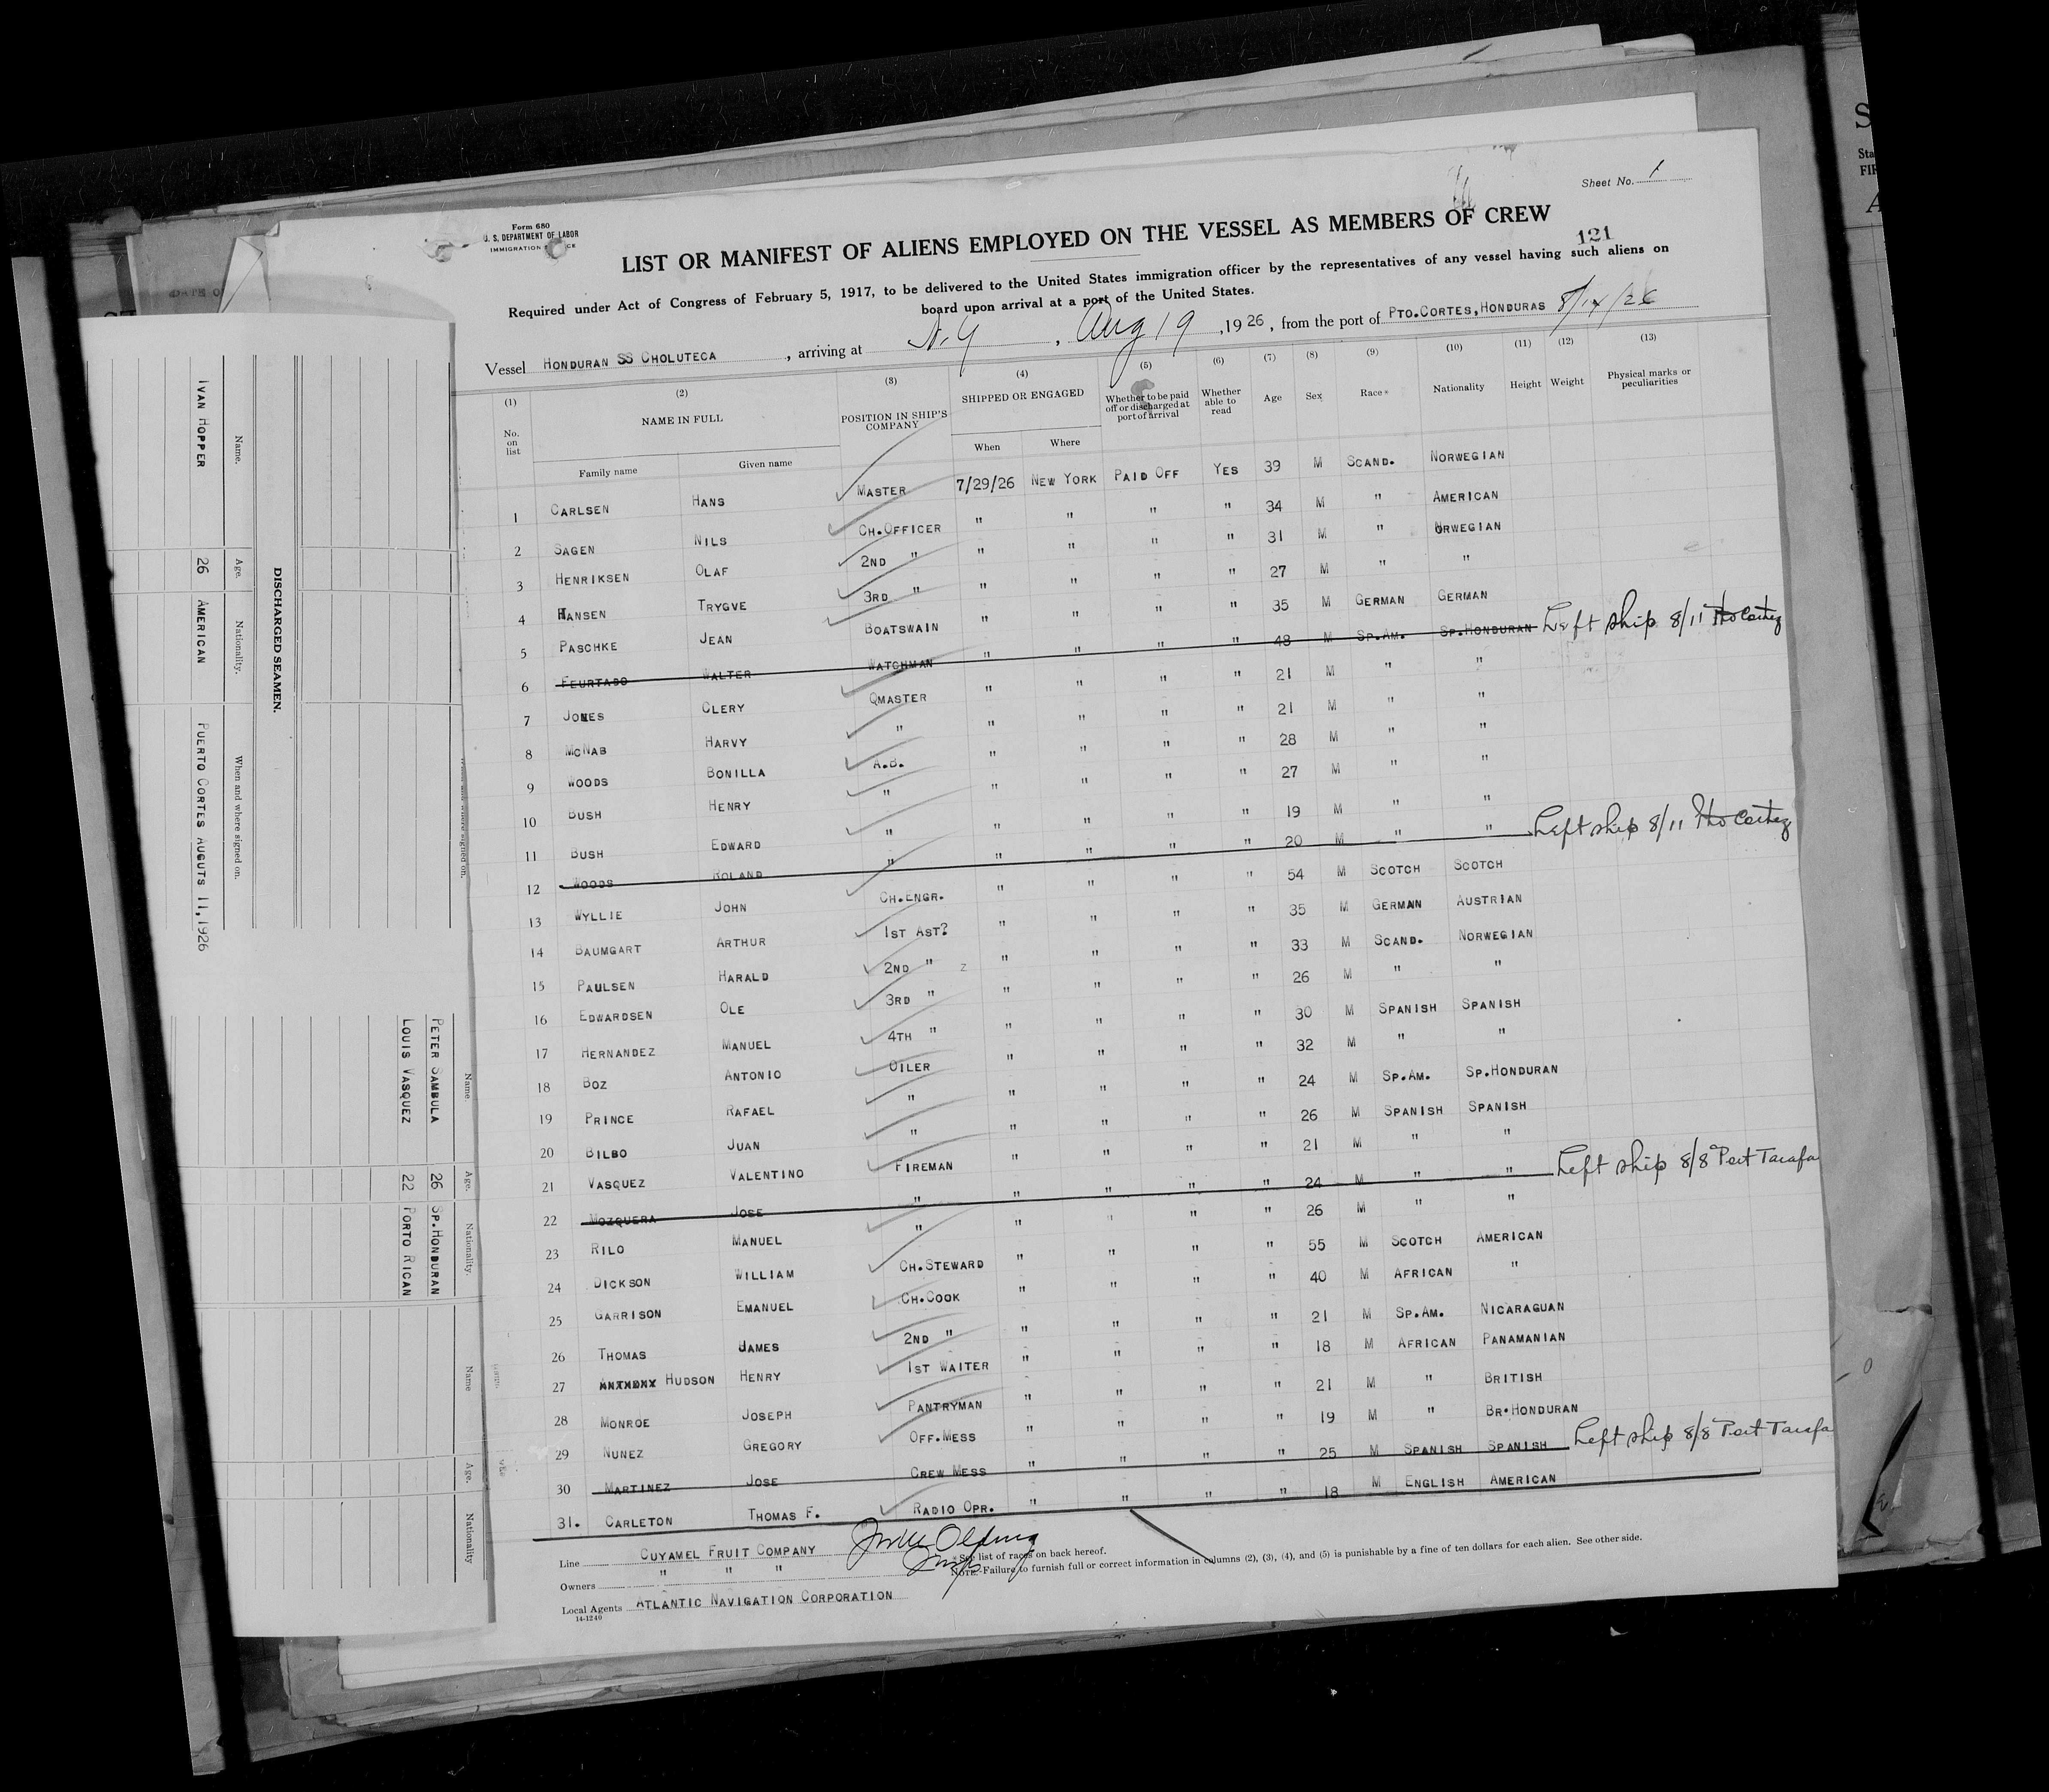 Sheet No. 1
Form 680
U. S. DEPARTMENT OF LABOR
IMMIGRATION
LIST OR MANIFEST OF ALIENS EMPLOYED ON THE VESSEL AS MEMBERS OF CREW
121
Required under Act of Congress of February 5, 1917, to be delivered to the United States immigration officer by the representatives of any vessel having such aliens on
board upon arrival at a port of the United States.
Vessel HONDURAN SS CHOLUTECA, arriving at N.Y, Aug 19, 1926, from the port of PTO.CORTES, HONDURAS 8/14/26
(1) (2) (3) (4) (5) (6) (7) (8) (9) (10) (11) (12) (13)
No. on list NAME IN FULL POSITION IN SHIP'S COMPANY SHIPPED OR ENGAGED Whether to be paid off or discharged at port of arrival Whether able to read Age Sex Race* Nationality Height Weight Physical marks or peculiarities
Family name Given name When Where
1 CARLSEN HANS MASTER 7/29/26 NEW YORK PAID OFF YES 39 M SCAND. NORWEGIAN
2 SAGEN NILS CH.OFFICER " " " " 34 M " AMERICAN
3 HENRIKSEN OLAF 2ND " " " " " 31 M " NORWEGIAN
4 HANSEN TRYGVE 3RD " " " " " 27 M " "
5 PASCHKE JEAN BOATSWAIN " " " " 35 M GERMAN GERMAN
6 FEURTADO WALTER WATCHMAN " " " " 48 M SP.AM. SP.HONDURAN Left ship 8/11 Pto Cortez
7 JONES CLERY QMASTER " " " " 21 M " "
8 MCNAB HARVY " " " " " 21 M " "
9 WOODS BONILLA A.B. " " " " 28 M " "
10 BUSH HENRY " " " " " 27 M " "
11 BUSH EDWARD " " " " " 19 M " "
12 WOODS ROLAND " " " " " 20 M " " Left ship 8/11 Pto Cortez
13 WYLLIE JOHN CH.ENGR. " " " " 54 M SCOTCH SCOTCH
14 BAUMGART ARTHUR 1ST AST? " " " " 35 M GERMAN AUSTRIAN
15 PAULSEN HARALD 2ND " 2 " " " " 33 M SCAND. NORWEGIAN
16 EDWARDSEN OLE 3RD " " " " " 26 M " "
17 HERNANDEZ MANUEL 4TH " " " " " 30 M SPANISH SPANISH
18 BOZ ANTONIO OILER " " " " 32 M " "
19 PRINCE RAFAEL " " " " " 24 M SP.AM. SP.HONDURAN
20 BILBO JUAN " " " " " 26 M SPANISH SPANISH
21 VASQUEZ VALENTINO FIREMAN " " " " 21 M " "
22 MOZQUERA JOSE " " " " " 24 M " " Left ship 8/8 Port Tarafa
23 RILO MANUEL " " " " " 26 M " "
24 DICKSON WILLIAM CH.STEWARD " " " " 55 M SCOTCH AMERICAN
25 GARRISON EMANUEL CH.COOK " " " " 40 M AFRICAN "
26 THOMAS JAMES 2ND " " " " " 21 M SP.AM. NICARAGUAN
27 ANTHONY HUDSON HENRY 1ST WAITER " " " " 18 M AFRICAN PANAMANIAN
28 MONROE JOSEPH PANTRYMAN " " " " 21 M " BRITISH
29 NUNEZ GREGORY OFF.MESS " " " " 19 M " BR.HONDURAN
30 MARTINEZ JOSE CREW MESS " " " " 25 M SPANISH SPANISH Left ship 8/8 Port Tarafa
31. CARLETON THOMAS F. RADIO OPR. " " " " 18 M ENGLISH AMERICAN
Line CUYAMEL FRUIT COMPANY
Owners " " "
Local Agents ATLANTIC NAVIGATION CORPORATION
14-1240
*See list of races on back hereof.
NOTE.-Failure to furnish full or correct information in columns (2), (3), (4), and (5) is punishable by a fine of ten dollars for each alien. See other side.
DISCHARGED SEAMEN.
Name. Age. Nationality. When and where signed on.
IVAN HOPPER 26 AMERICAN PUERTO CORTES AUGUTS 11, 1926
Name. Age. Nationality. Name Age. Nationality
PETER SAMBULA 26 SP.HONDURAN
LOUIS VASQUEZ 22 PORTO RICAN